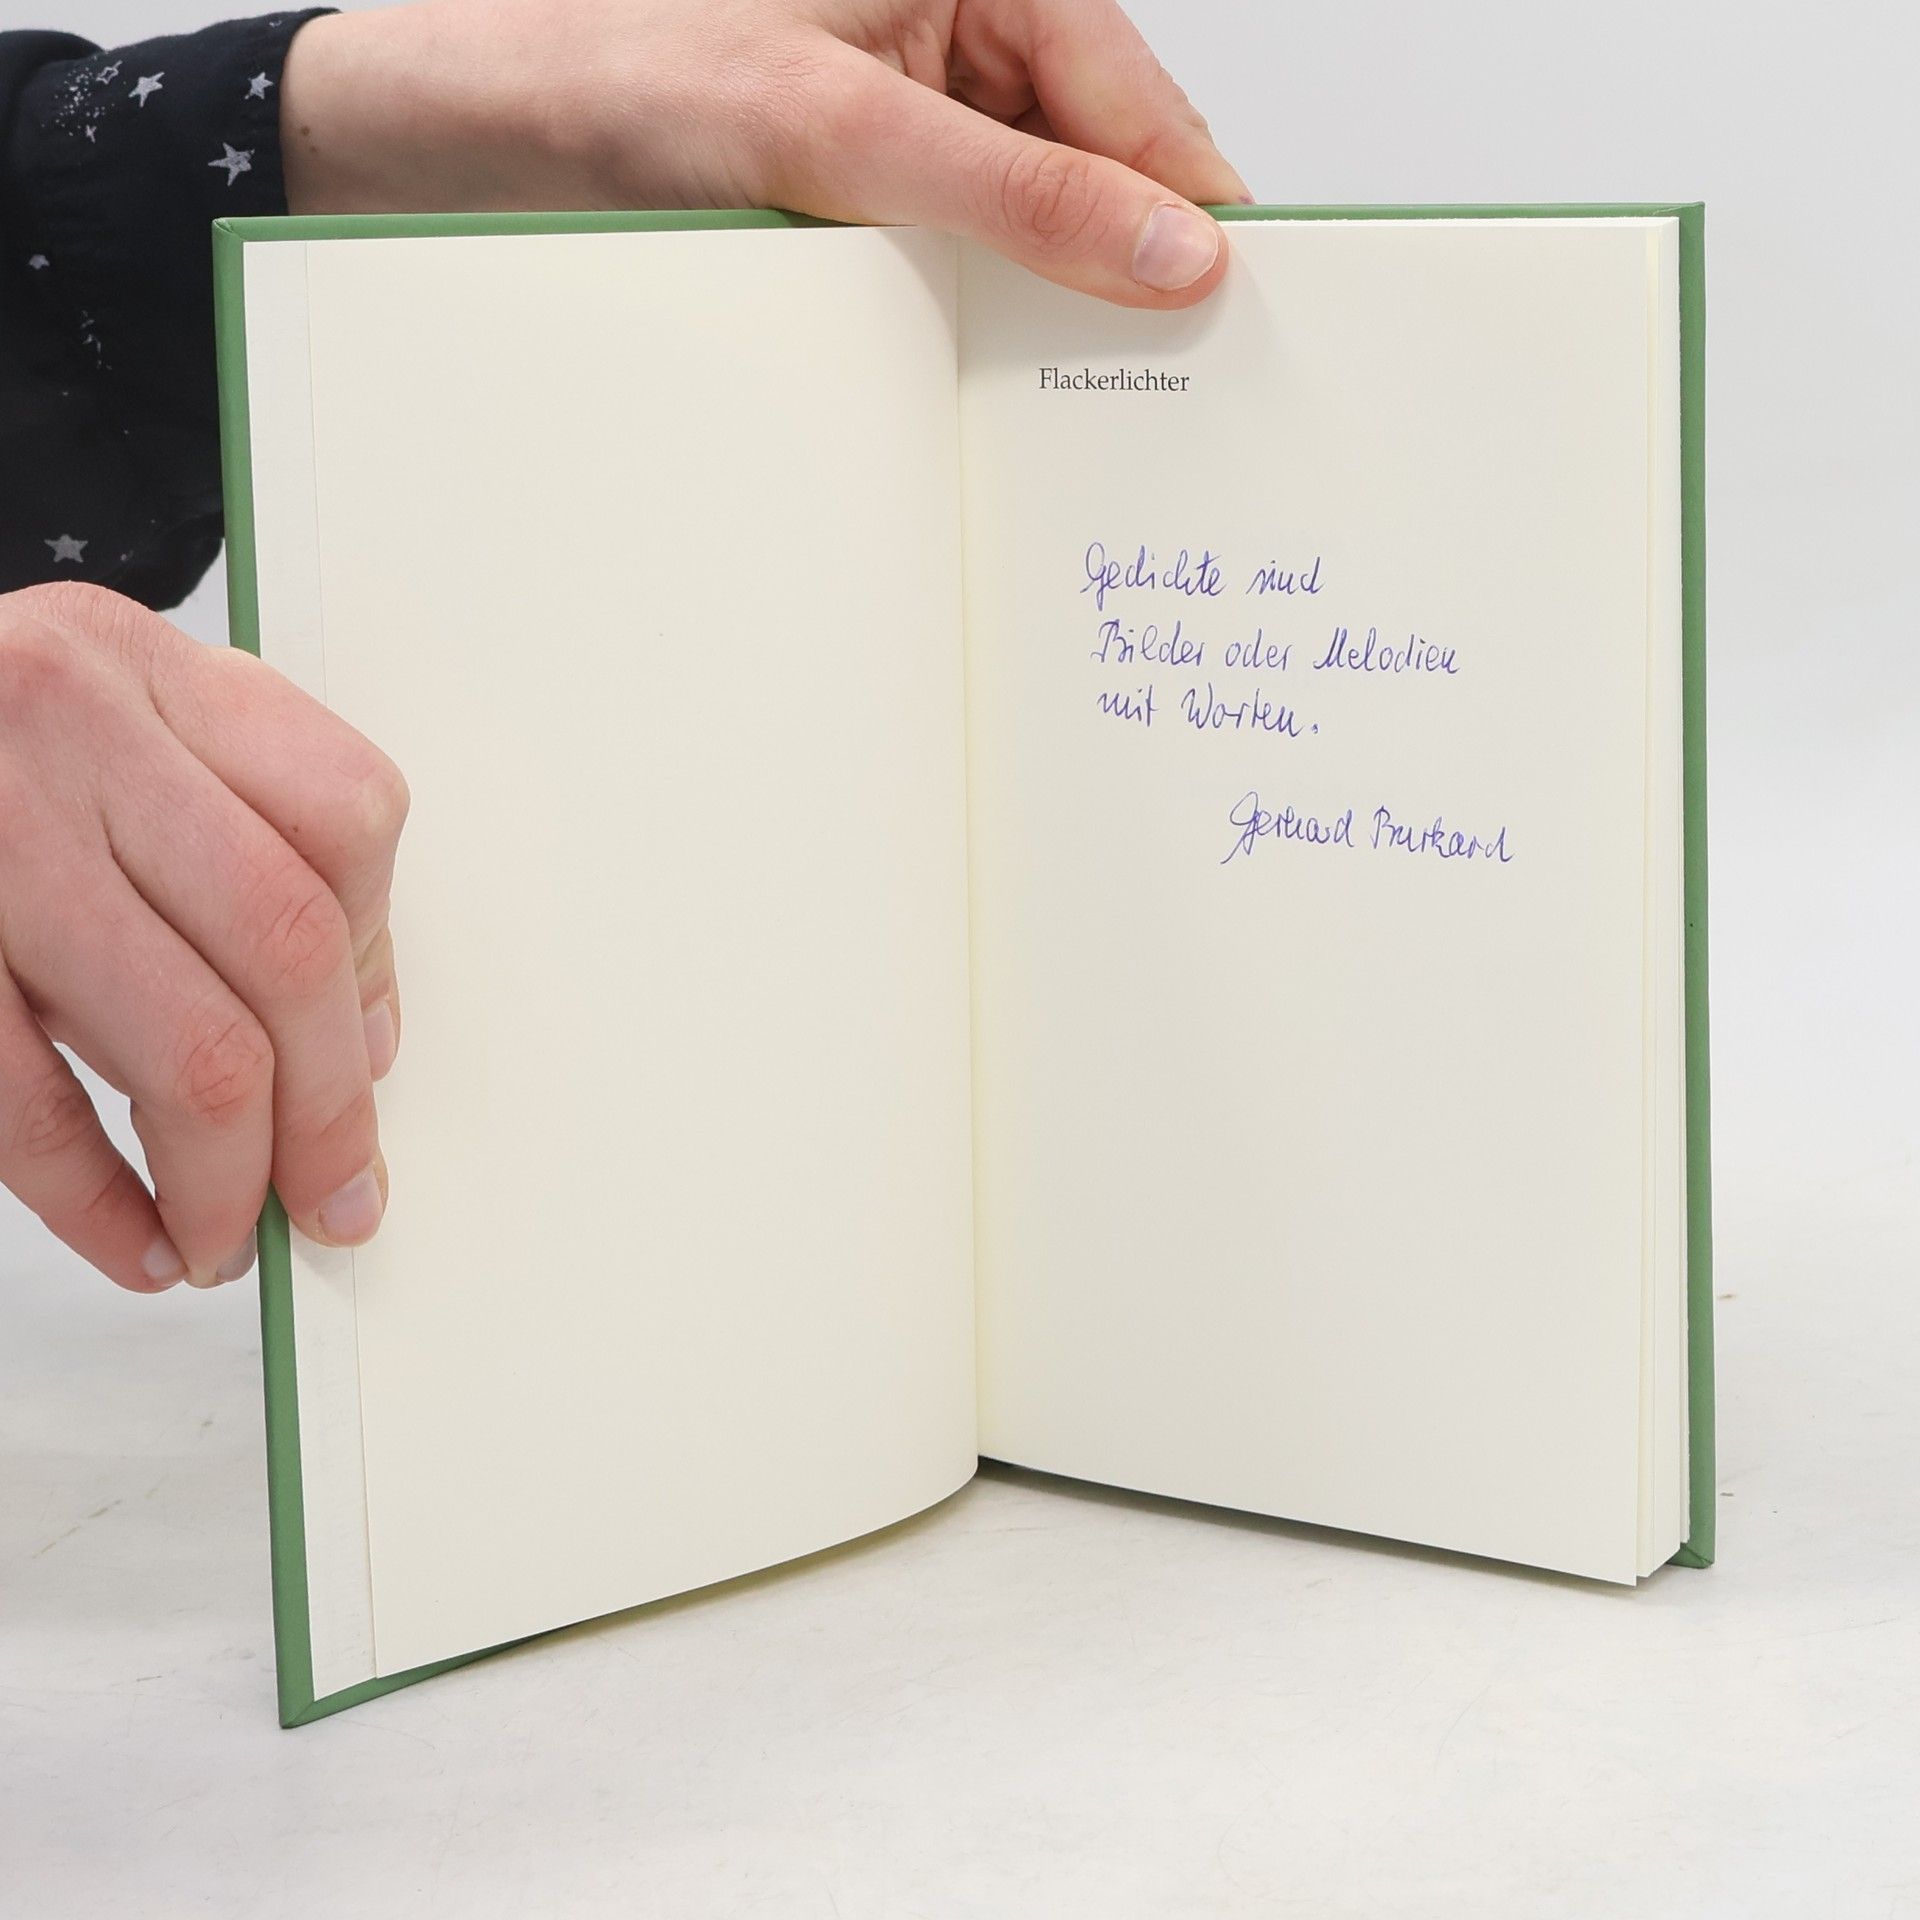 Flackerlichter
Gedichte sind
Bilder oder Melodien
mit Worten.
Gerhard Burkard